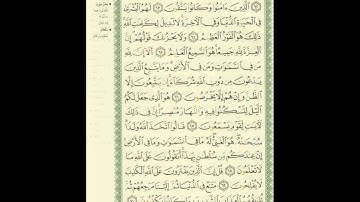 الَّذِينَ ءَامَنُوا وَكَانُوا يَتَّقُونَ ۝ لَهُمُ الْبُشْرَى
فِي الْحَيَوٰةِ الدُّنْيَا وَفِي الْءَاخِرَةِ لَا تَبْدِيلَ لِكَلِمَٰتِ اللَّهِ
ذَٰلِكَ هُوَ الْفَوْزُ الْعَظِيمُ ۝ وَلَا يَحْزُنكَ قَوْلُهُمْ إِنَّ
الْعِزَّةَ لِلَّهِ جَمِيعًا هُوَ السَّمِيعُ الْعَلِيمُ ۝ أَلَا إِنَّ لِلَّهِ
مَن فِي السَّمَٰوَٰتِ وَمَن فِي الْأَرْضِ وَمَا يَتَّبِعُ الَّذِينَ
يَدْعُونَ مِن دُونِ اللَّهِ شُرَكَاءَ إِن يَتَّبِعُونَ إِلَّا
الظَّنَّ وَإِنْ هُمْ إِلَّا يَخْرُصُونَ ۝ هُوَ الَّذِي جَعَلَ لَكُمُ
الَّيْلَ لِتَسْكُنُوا فِيهِ وَالنَّهَارَ مُبْصِرًا إِنَّ فِي ذَٰلِكَ
لَءَايَٰتٍ لِّقَوْمٍ يَسْمَعُونَ ۝ قَالُوا اتَّخَذَ اللَّهُ وَلَدًا
سُبْحَٰنَهُ هُوَ الْغَنِيُّ لَهُ مَا فِي السَّمَٰوَٰتِ وَمَا فِي الْأَرْضِ
إِنْ عِندَكُم مِّن سُلْطَٰنٍ بِهَٰذَا أَتَقُولُونَ عَلَى اللَّهِ مَا
لَا تَعْلَمُونَ ۝ قُلْ إِنَّ الَّذِينَ يَفْتَرُونَ عَلَى اللَّهِ الْكَذِبَ
لَا يُفْلِحُونَ ۝ مَتَٰعٌ فِي الدُّنْيَا ثُمَّ إِلَيْنَا مَرْجِعُهُمْ ثُمَّ